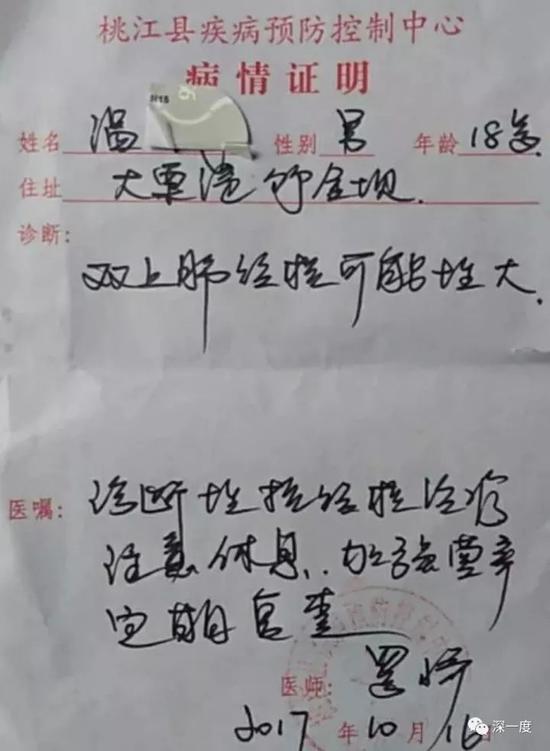 桃江县疾病预防控制中心
病情证明
姓名 温 性别 男 年龄 18岁
住址 大栗港
诊断:
双上肺结核可能性大.
医嘱: 诊断性抗结核治疗
注意休息, 加强营养
定期复查
医师:
2017 年 10 月 16
深一度